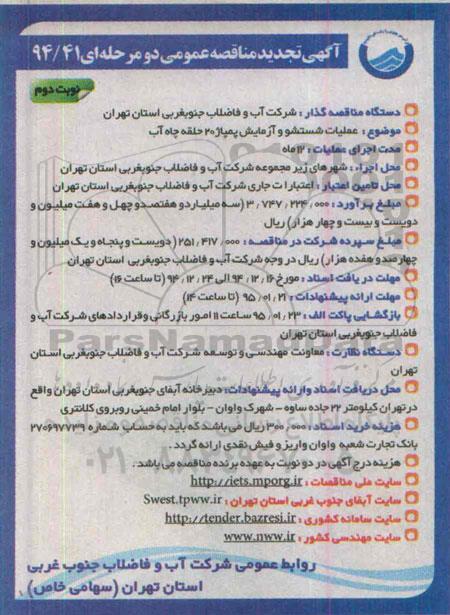 آگهی تجدید مناقصه عمومی دو مرحله‌ای ۹۴/۴۱
نوبت دوم
دستگاه مناقصه گذار : شرکت آب و فاضلاب جنوبغربی استان تهران
موضوع : عملیات شستشو و آزمایش پمپاژ ۲۰ حلقه چاه آب
مدت اجرای عملیات : ۱۲ ماه
محل اجراء : شهرهای زیر مجموعه شرکت آب و فاضلاب جنوبغربی استان تهران
محل تامین اعتبار : اعتبارات جاری شرکت آب و فاضلاب جنوبغربی استان تهران
مبلغ برآورد : ۳/۷۴۷/۲۲۴/۰۰۰ (سه میلیارد و هفتصد و چهل و هفت میلیون و
دویست و بیست و چهار هزار) ریال
مبلغ سپرده شرکت در مناقصه : ۲۵۱/۴۱۷/۰۰۰ (دویست و پنجاه و یک میلیون و
چهارصد و هفده هزار) ریال در وجه شرکت آب و فاضلاب جنوبغربی استان تهران
مهلت دریافت اسناد : مورخ ۹۴/۱۲/۱۶ الی ۹۴/۱۲/۲۴ (تا ساعت ۱۶)
مهلت ارائه پیشنهادات : ۹۵/۰۱/۲۱ (تا ساعت ۱۴)
بازگشایی پاکت الف : ۹۵/۰۱/۲۳ ساعت ۱۱ امور بازرگانی و قراردادهای شرکت آب و
فاضلاب جنوبغربی استان تهران
دستگاه نظارت : معاونت مهندسی و توسعه شرکت آب و فاضلاب جنوبغربی استان
تهران
محل دریافت اسناد و ارائه پیشنهادات : دبیرخانه آبفای جنوبغربی استان تهران واقع
در تهران کیلومتر ۲۲ جاده ساوه - شهرک واوان - بلوار امام خمینی روبروی کلانتری
هزینه خرید اسناد : ۳۰۰/۰۰۰ ریال می باشد که باید به حساب شماره ۲۷۰۶۹۷۷۳۹
بانک تجارت شعبه واوان واریز و فیش نقدی ارائه گردد .
هزینه درج آگهی در دو نوبت به عهده برنده مناقصه می باشد .
سایت ملی مناقصات : http://iets.mporg.ir
سایت آبفای جنوب غربی استان تهران : Swest.tpww.ir
سایت سامانه کشوری : http://tender.bazresi.ir
سایت مهندسی کشور : www.nww.ir
روابط عمومی شرکت آب و فاضلاب جنوب غربی
استان تهران (سهامی خاص)
ParsNamadData